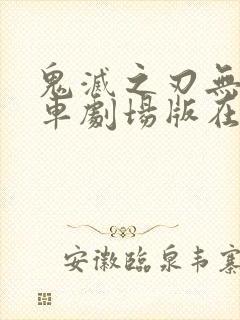 鬼滅之刃無
車劇場版在
安徽臨泉韦寨